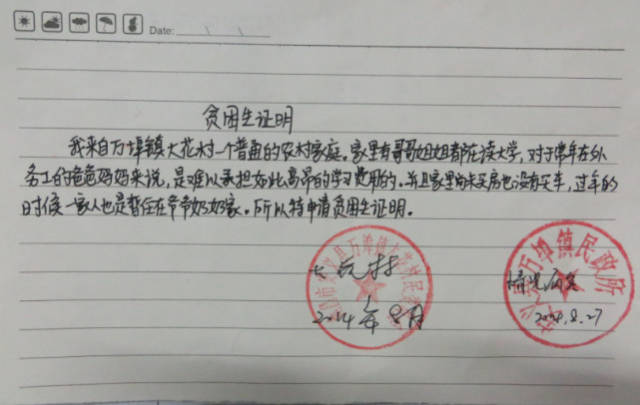 Date:
贫困生证明
我来自万埠镇大花村一个普通的农村家庭。家里有哥哥姐姐都在读大学，对于常年在外
务工的爸爸妈妈来说，是难以承担如此高昂的学习费用的。并且家里尚未买房也没有买车，过年的
时候一家人也是暂住在爷爷奶奶家。所以特申请贫困生证明。
万埠镇
万埠镇民政所
2014年8月
2014.8.27